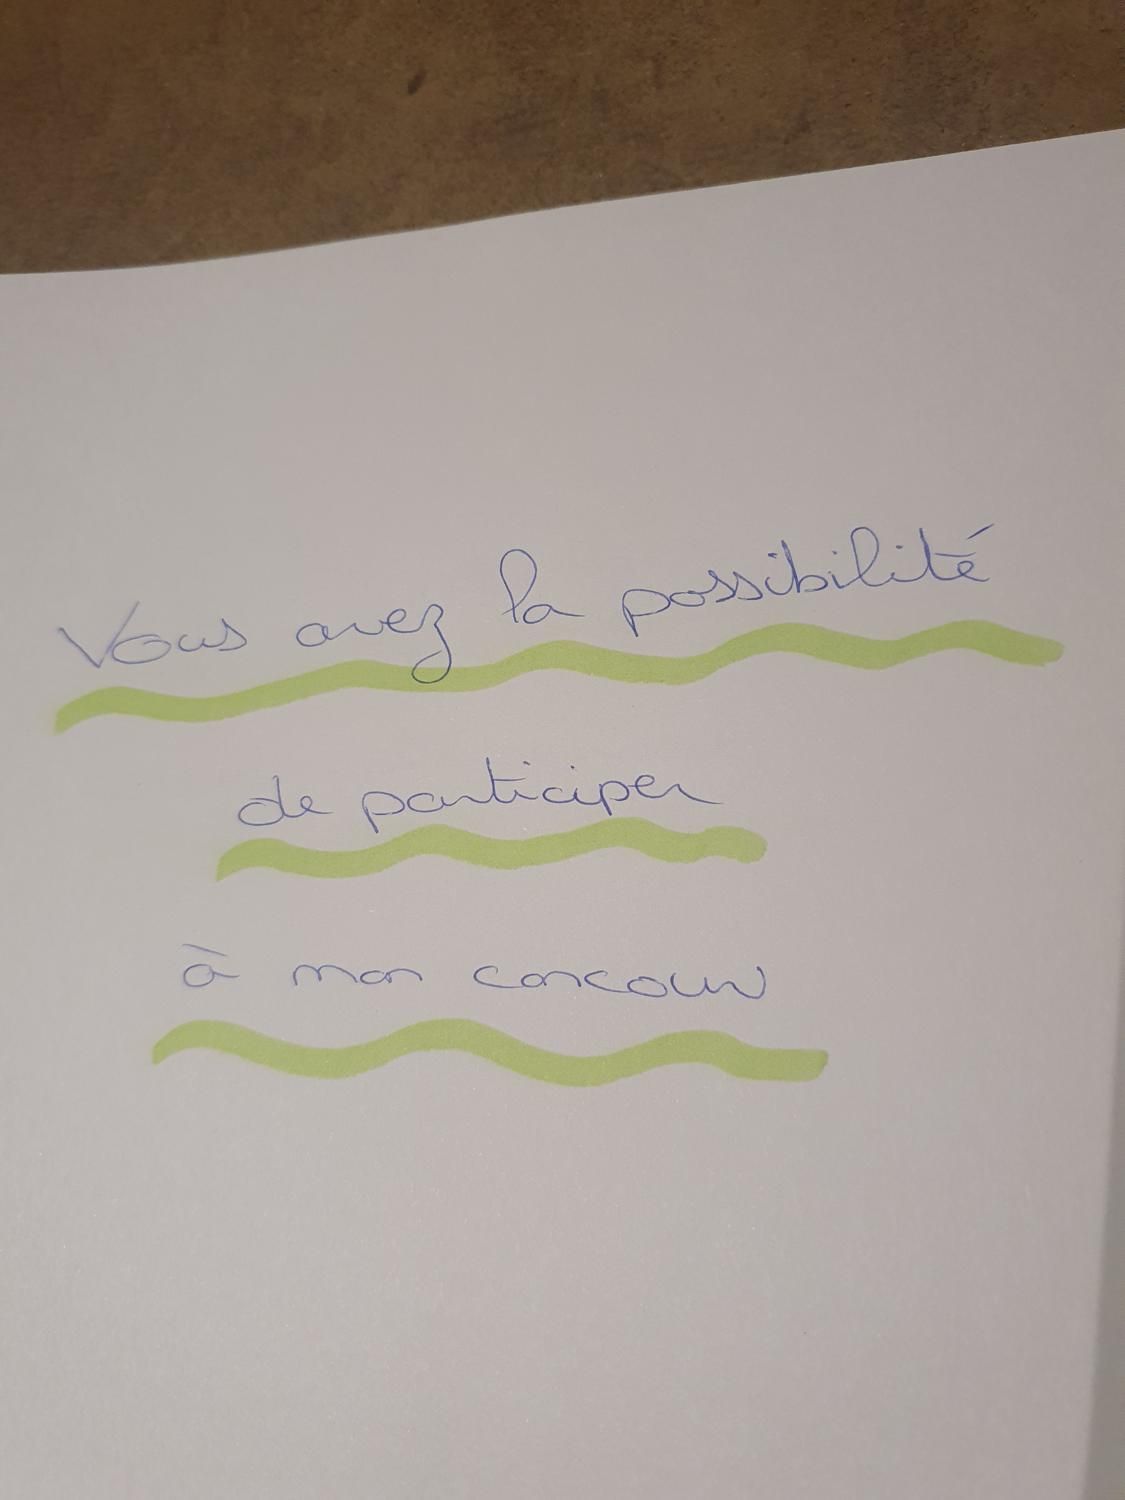 Vous avez la possibilité
de participer
à mon concours